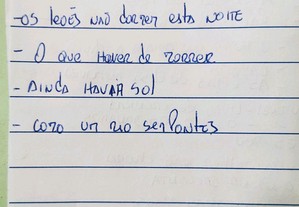 -OS leões NÃO dormem esta NOITE
- O que Houver de morrer
- AINDA HAVIA Sol
- como um rio sem Pontes